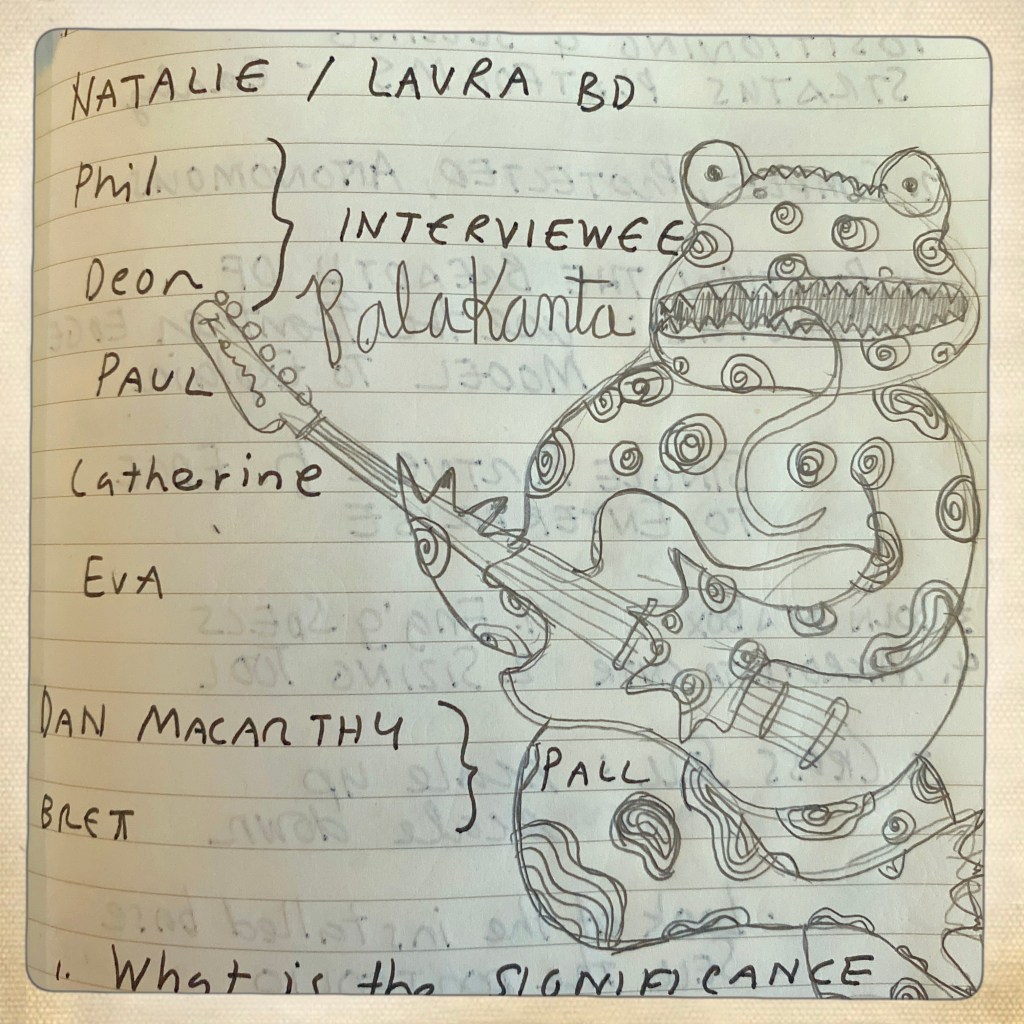 NATALIE / LAURA BD
Phil
INTERVIEWEE
Deon
PalaKanta
PAUL
Catherine
EVA
DAN MACARTHY
PALL
BRET
1. What is the SIGNIFICANCE